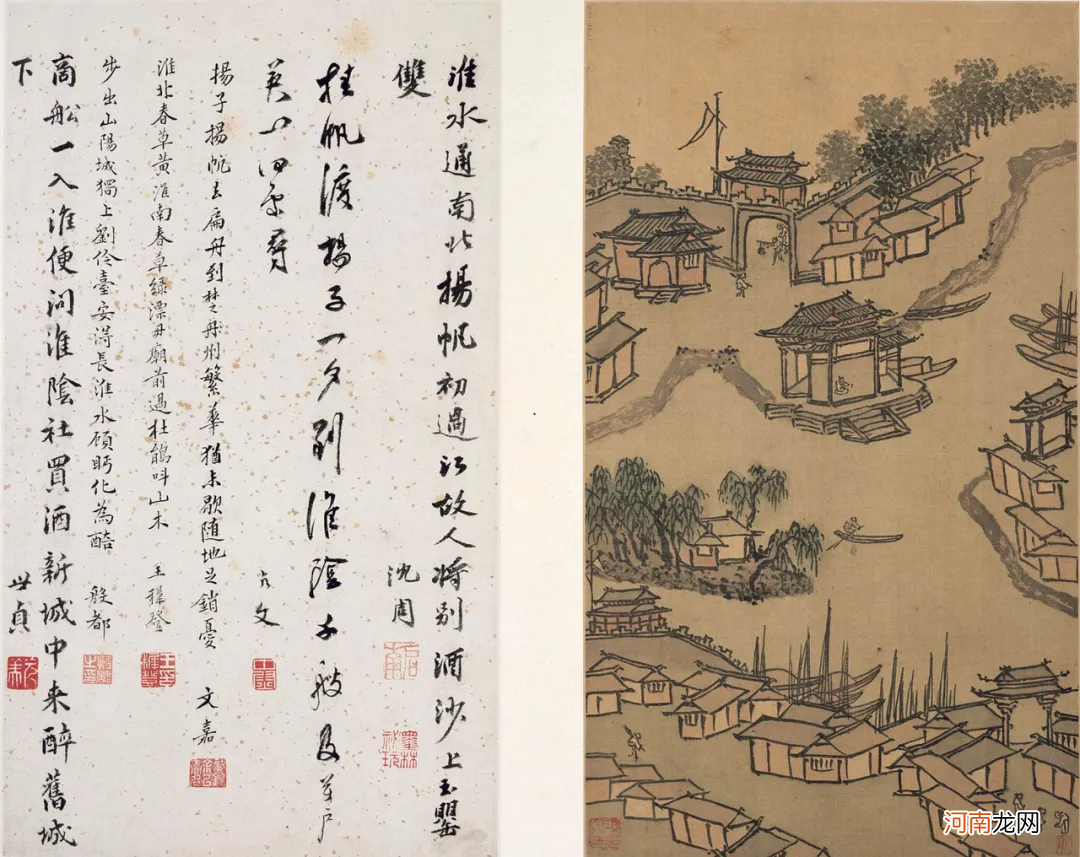 淮水通南北揚帆初過江故人将别酒沙上玉罌
雙
沈周
墨林祕玩
挂帆渡揚子一夕到淮陰千艘及萬户
揚子揚帆去扁舟到楚州繁華猶未歇随地足銷憂
文嘉
淮北春草黄淮南春草緑漂母廟前過杜鵑叫山木
王穉登
步出山陽城獨上劉伶臺安得長淮水顧眄化為醅
殷都
商舩一入淮便問淮陰社買酒新城中来醉舊城
下
世貞
河南龙网